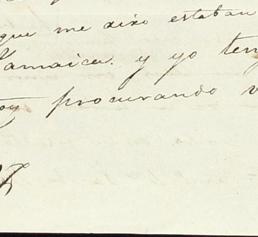 que me dixo estaban
Jamaica. y yo ten
procurando v